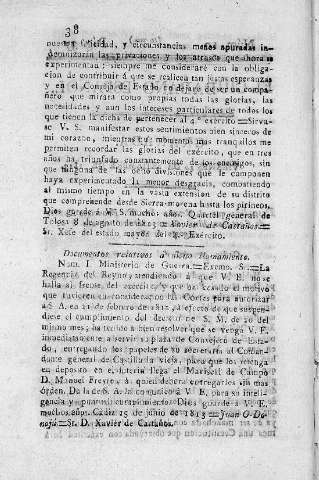 38
nuestra felicidad, y circunstancias menos apuradas in-
demnizarán las privaciones y los atrasos que ahora se
experimentan; siempre me consideraré con la obliga-
cion de contribuir á que se realicen tan justas esperanzas
y en el Consejo de Estado no dejaré de ser un compa-
ñero que mirará como propias todas las glorias, las
necesidades y aun los intereses particulares de todos los
que tienen la dicha de pertenecer al 4.º exército.=Sirva-
se V. S. manifestar estos sentimientos bien sinceros de
mi corazon, mientras que momentos mas tranquilos me
permiten recordar las glorias del exército, que en tres
años ha triunfado constantemente de los enemigos, sin
que ninguna de las ocho divisiones que le componen
haya experimentado la menor desgracia, combatiendo
al mismo tiempo en la vasta extension de su distrito
que comprende desde Sierra-morena hasta los pirineos.
Dios guarde á V. S. muchos años. Quartel general de
Tolosa 8 de agosto de 1813 = Xavier de Castaños.=
Sr. Xefe del estado mayor del 4.º Exército.
Documentos relativos á dicho
Num. I. Ministerio de Guerra.=Excmo. Sr.=La
Regencia del Reyno, atendiendo á que V. E. no se
halla al frente del exército y que ha cesado el motivo
que tuvieron en consideracion las Córtes para autorizar
á S. A. en 21 de febrero de 1812, á efecto de que suspen-
diese el cumplimiento del decreto de S. M. de 20 del
mismo mes; ha tenido á bien resolver que se venga V. E.
inmediatamente á servir su plaza de Consejero de Esta-
do, entregando los papeles de su secretaría al Coman-
dante general de Castilla la Vieja, para que los retenga
en depósito en el ínterin llega el Mariscal de Campo
D. Manuel Freyre, á quien deberá entregarlos sin mas
órden. De la de S. A. lo comunico á V. E. para su inteli-
gencia y puntual cumplimiento. Dios guarde á V. E.
muchos años. Cádiz 15 de junio de 1813 = Juan O-Do-
nojú = Sr. D. Xavier de Castaños.